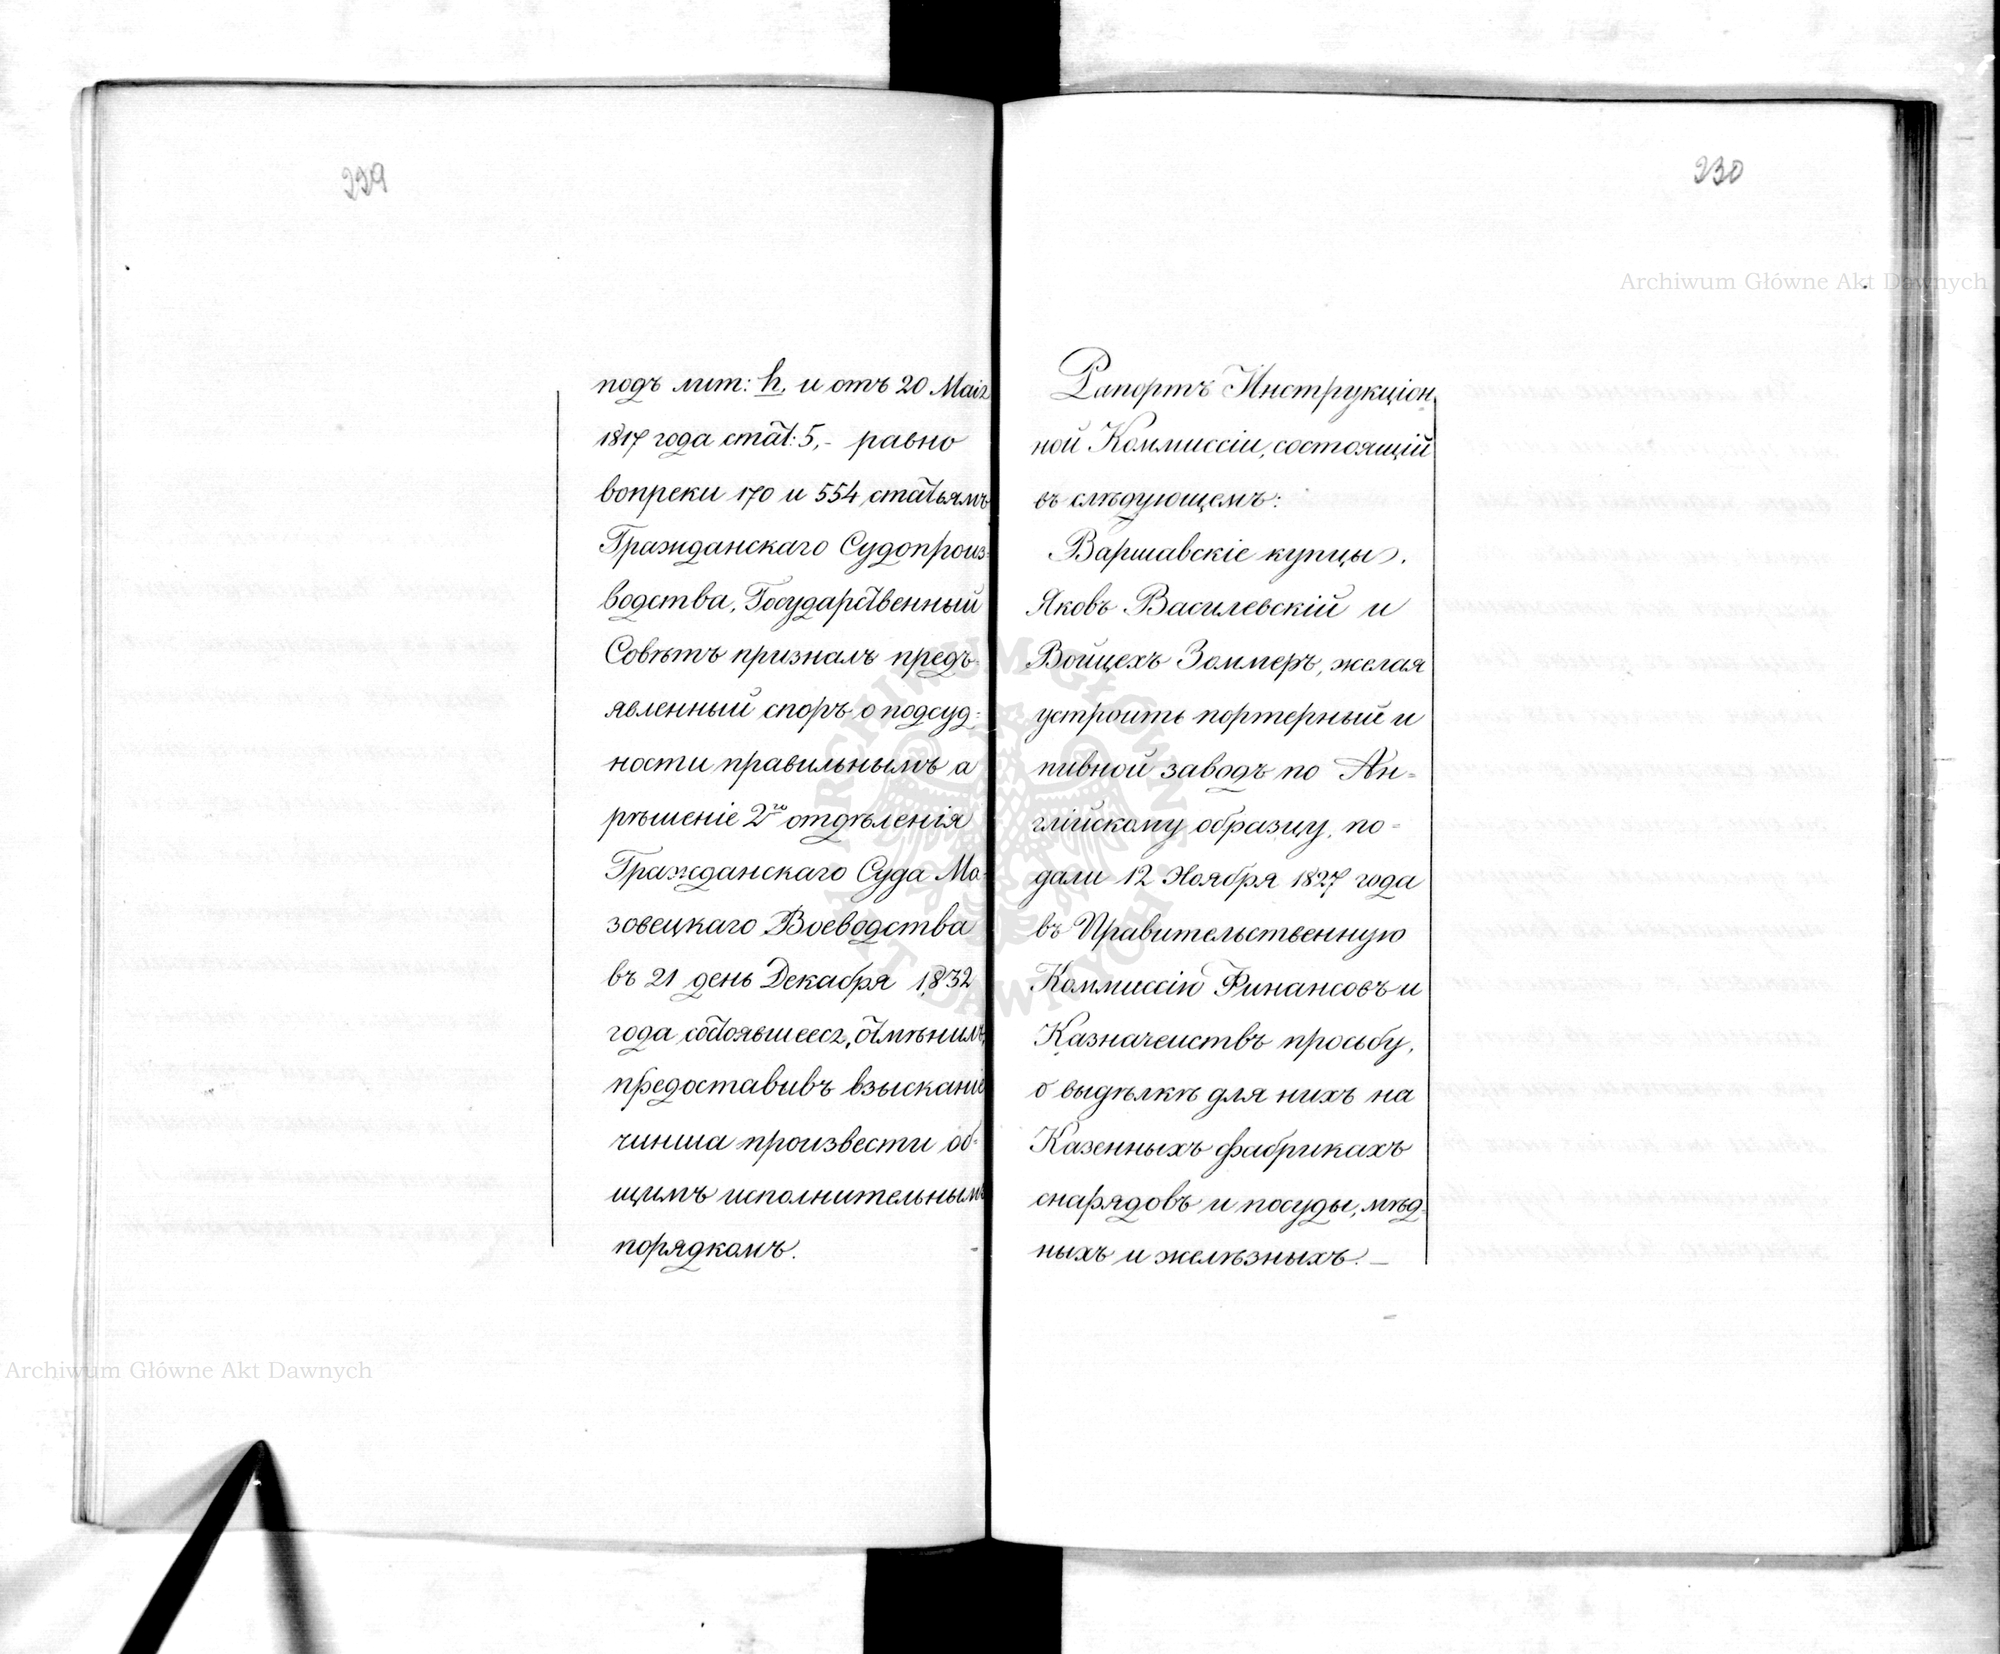 229
подъ лит: h. и отъ 20 Маія
1817 года стат: 5,- равно
вопреки 170 и 554 статьямъ
Гражданскаго Судопроиз-
водства, Государственный
Совѣтъ призналъ предъ-
явленный споръ о подсуд-
ности правильнымъ а
рѣшеніе 2го отдѣленія
Гражданскаго Суда Ма-
зовецкаго Воеводства
въ 21 день Декабря 1832
года состоявшееся, отмѣнилъ,
предоставивъ взысканіе
чинша произвести об-
щимъ исполнительнымъ
порядкомъ.
230
Рапортъ Инструкціон-
ной Коммиссіи, состоящій
въ слѣдующемъ:
Варшавскіе купцы.
Яковъ Василевскій и
Войцехъ Зоммеръ, желая
устроить портерный и
пивной заводъ по Ан-
глійскому образцу, по-
дали 12 Ноября 1827 года
въ Правительственную
Коммиссію Финансовъ и
Казначеиствъ просьбу,
о выдѣлкѣ для нихъ на
Казенныхъ фабрикахъ
снарядовъ и посуды, мѣд-
ныхъ и желѣзныхъ. —
Archiwum Główne Akt Dawnych
Archiwum Główne Akt Dawnych
ARCHIWUM GŁÓWNE AKT DAWNYCH